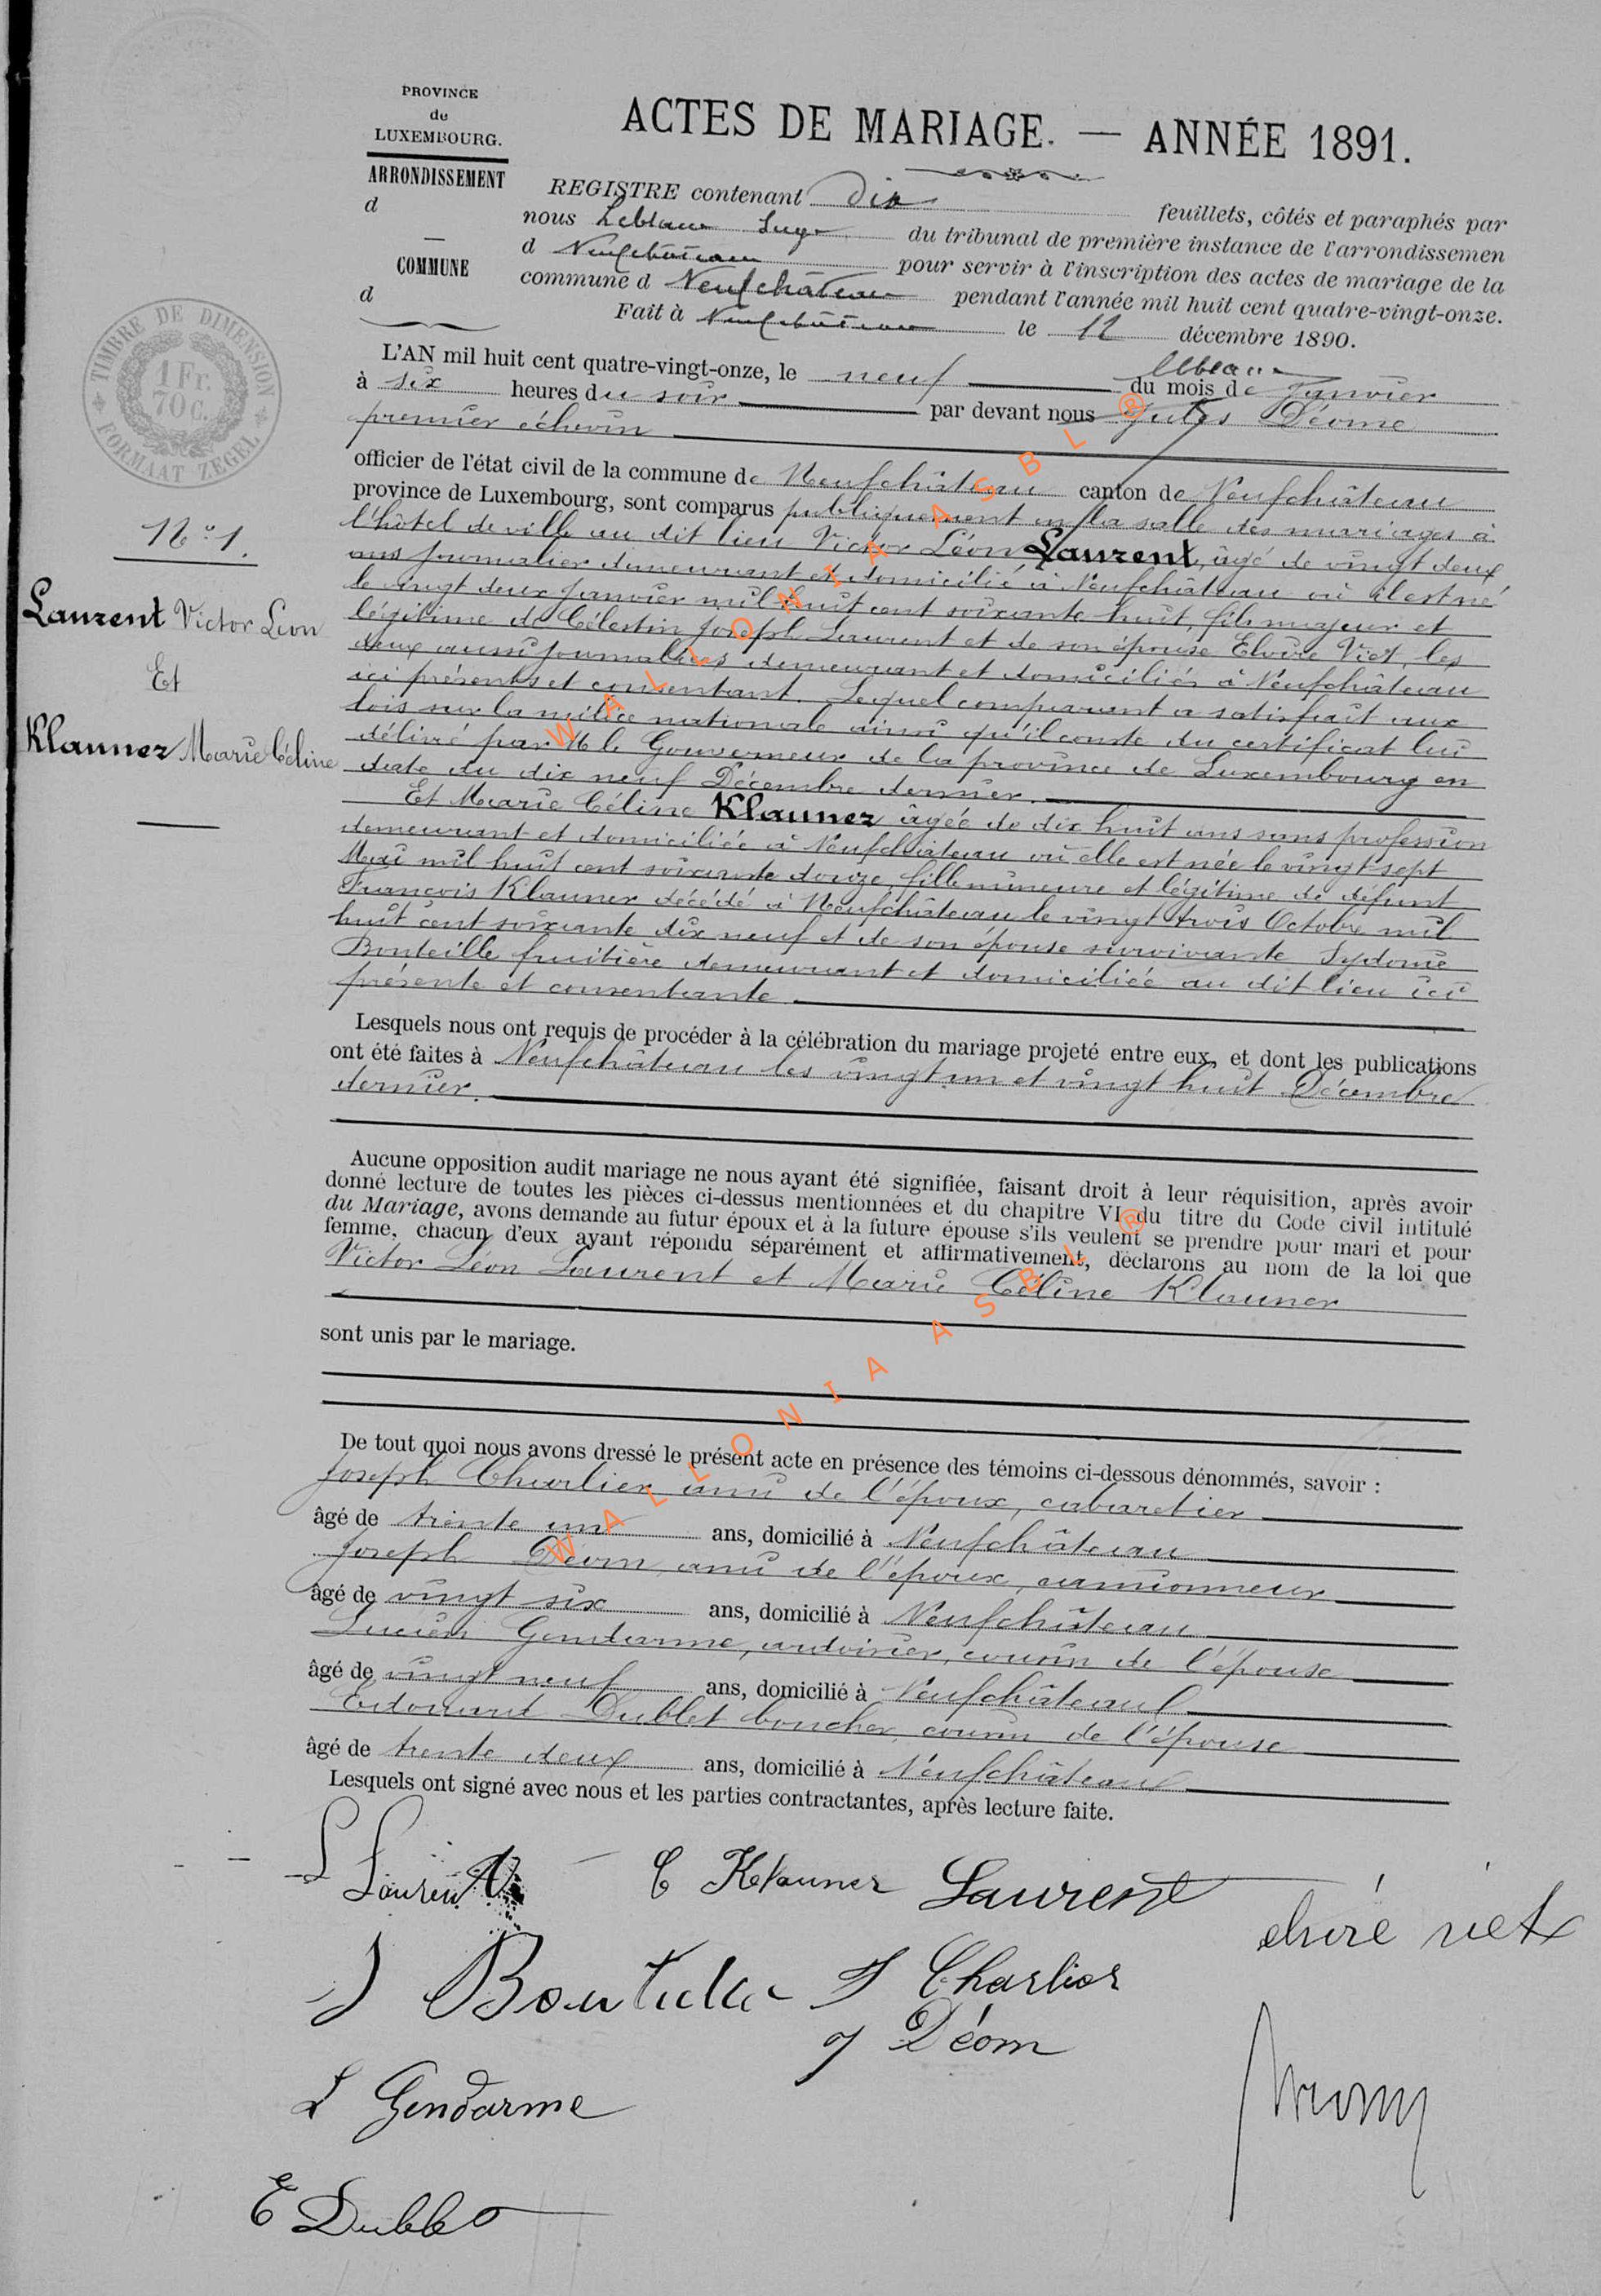 PROVINCE
de
LUXEMBOURG.
ARRONDISSEMENT
d
COMMUNE
d
ACTES DE MARIAGE. — ANNÉE 1891.
REGISTRE contenant dix feuillets, côtés et paraphés par
nous Leblanc Juge du tribunal de première instance de l'arrondissemen
d Neufchâteau pour servir à l'inscription des actes de mariage de la
commune d Neufchâteau pendant l'année mil huit cent quatre-vingt-onze.
Fait à Neufchâteau le 12 décembre 1890.
TIMBRE DE DIMENSION
1 Fr.
70 C.
FORMAAT ZEGEL
L'AN mil huit cent quatre-vingt-onze, le neuf du mois de Janvier
à six heures du soir par devant nous Jules Déome
premier échevin
officier de l'état civil de la commune de Neufchâteau canton de Neufchâteau
province de Luxembourg, sont comparus publiquement en la salle des mariages à
l'hôtel de ville au dit lieu Victor Léon Laurent, âgé de vingt deux
ans journalier demeurant et domicilié à Neufchâteau où il est né
le vingt deux Janvier mil huit cent soixante huit, fils majeur et
légitime de Célestin Joseph Laurent et de son épouse Elvire Viet, les
deux aussi journaliers demeurant et domiciliés à Neufchâteau
ici présents et consentant. Lequel comparant a satisfait aux
lois sur la milice nationale ainsi qu'il conste du certificat lui
délivré par M le Gouverneur de la province de Luxembourg en
date du dix neuf Décembre dernier.
Et Marie Céline Klauner âgée de dix huit ans sans profession
demeurant et domiciliée à Neufchâteau où elle est née le vingt sept
Mai mil huit cent soixante douze fille mineure et légitime de défunt
François Klauner décédé à Neufchâteau le vingt trois Octobre mil
huit cent soixante dix neuf et de son épouse survivante Sydonie
Bouteille fruitière demeurant et domiciliée au dit lieu ici
présente et consentante
N° 1.
Laurent Victor Léon
Et
Klauner Marie Céline
Lesquels nous ont requis de procéder à la célébration du mariage projeté entre eux, et dont les publications
ont été faites à Neufchâteau les vingt un et vingt huit Décembre
dernier.
Aucune opposition audit mariage ne nous ayant été signifiée, faisant droit à leur réquisition, après avoir
donné lecture de toutes les pièces ci-dessus mentionnées et du chapitre VI du titre du Code civil intitulé
du Mariage, avons demandé au futur époux et à la future épouse s'ils veulent se prendre pour mari et pour
femme, chacun d'eux ayant répondu séparément et affirmativement, déclarons au nom de la loi que
Victor Léon Laurent et Marie Céline Klauner
sont unis par le mariage.
De tout quoi nous avons dressé le présent acte en présence des témoins ci-dessous dénommés, savoir :
Joseph Charlier ami de l'époux, cabaretier
âgé de trente un ans, domicilié à Neufchâteau
Joseph Déom, ami de l'époux, camionneur
âgé de vingt six ans, domicilié à Neufchâteau
Lucien Gendarme, ardoisier, cousin de l'épouse
âgé de vingt neuf ans, domicilié à Neufchâteau
Edouard Dublet boucher, cousin de l'épouse
âgé de trente deux ans, domicilié à Neufchâteau
Lesquels ont signé avec nous et les parties contractantes, après lecture faite.
L Laurent C Klauner Laurent
elvire viet
S Bouteille J Charlier
J Déom
L Gendarme
E Dublet
WALLONIA ASBL ®
WALLONIA ASBL ®